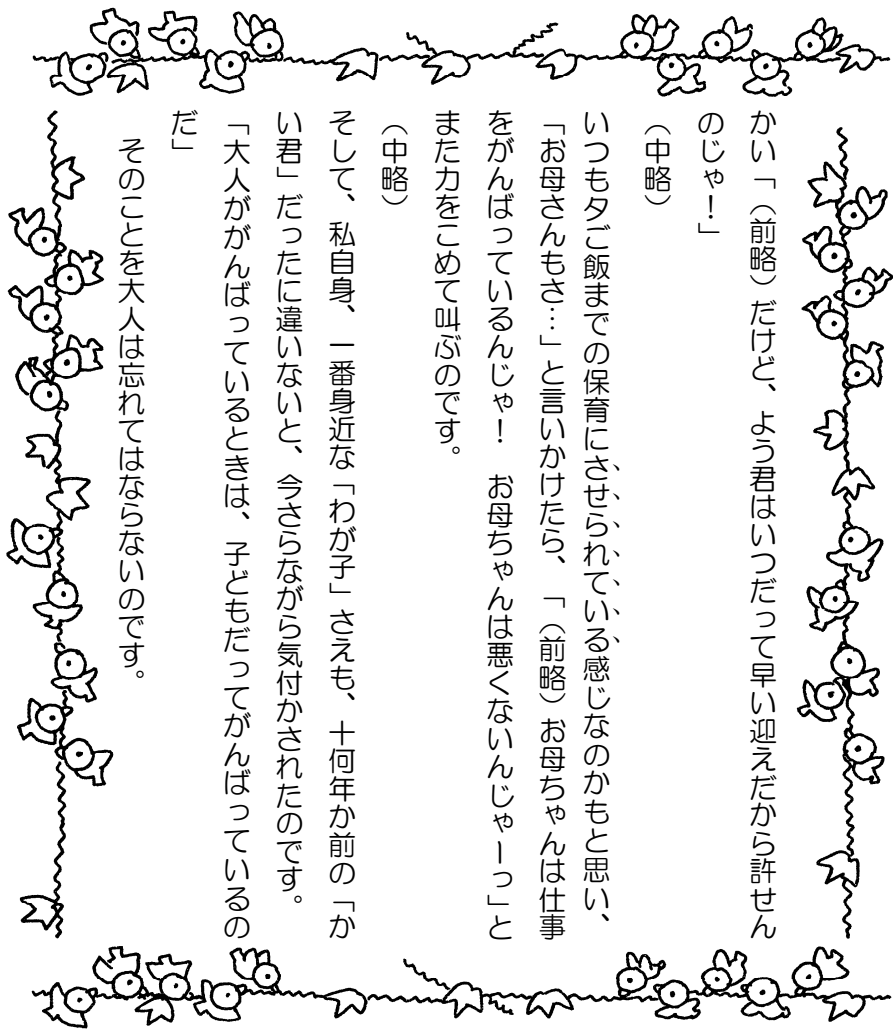 かい「（前略）だけど、よう君はいつだって早い迎えだから許せん
のじゃ！」
（中略）
いつも夕ご飯までの保育にさせられている感じなのかもと思い、
「お母さんもさ…」と言いかけたら、「（前略）お母ちゃんは仕事
をがんばっているんじゃ！　お母ちゃんは悪くないんじゃーっ」と
また力をこめて叫ぶのです。
（中略）
そして、私自身、一番身近な「わが子」さえも、十何年か前の「か
い君」だったに違いないと、今さらながら気付かされたのです。
「大人ががんばっているときは、子どもだってがんばっているの
だ」
　そのことを大人は忘れてはならないのです。